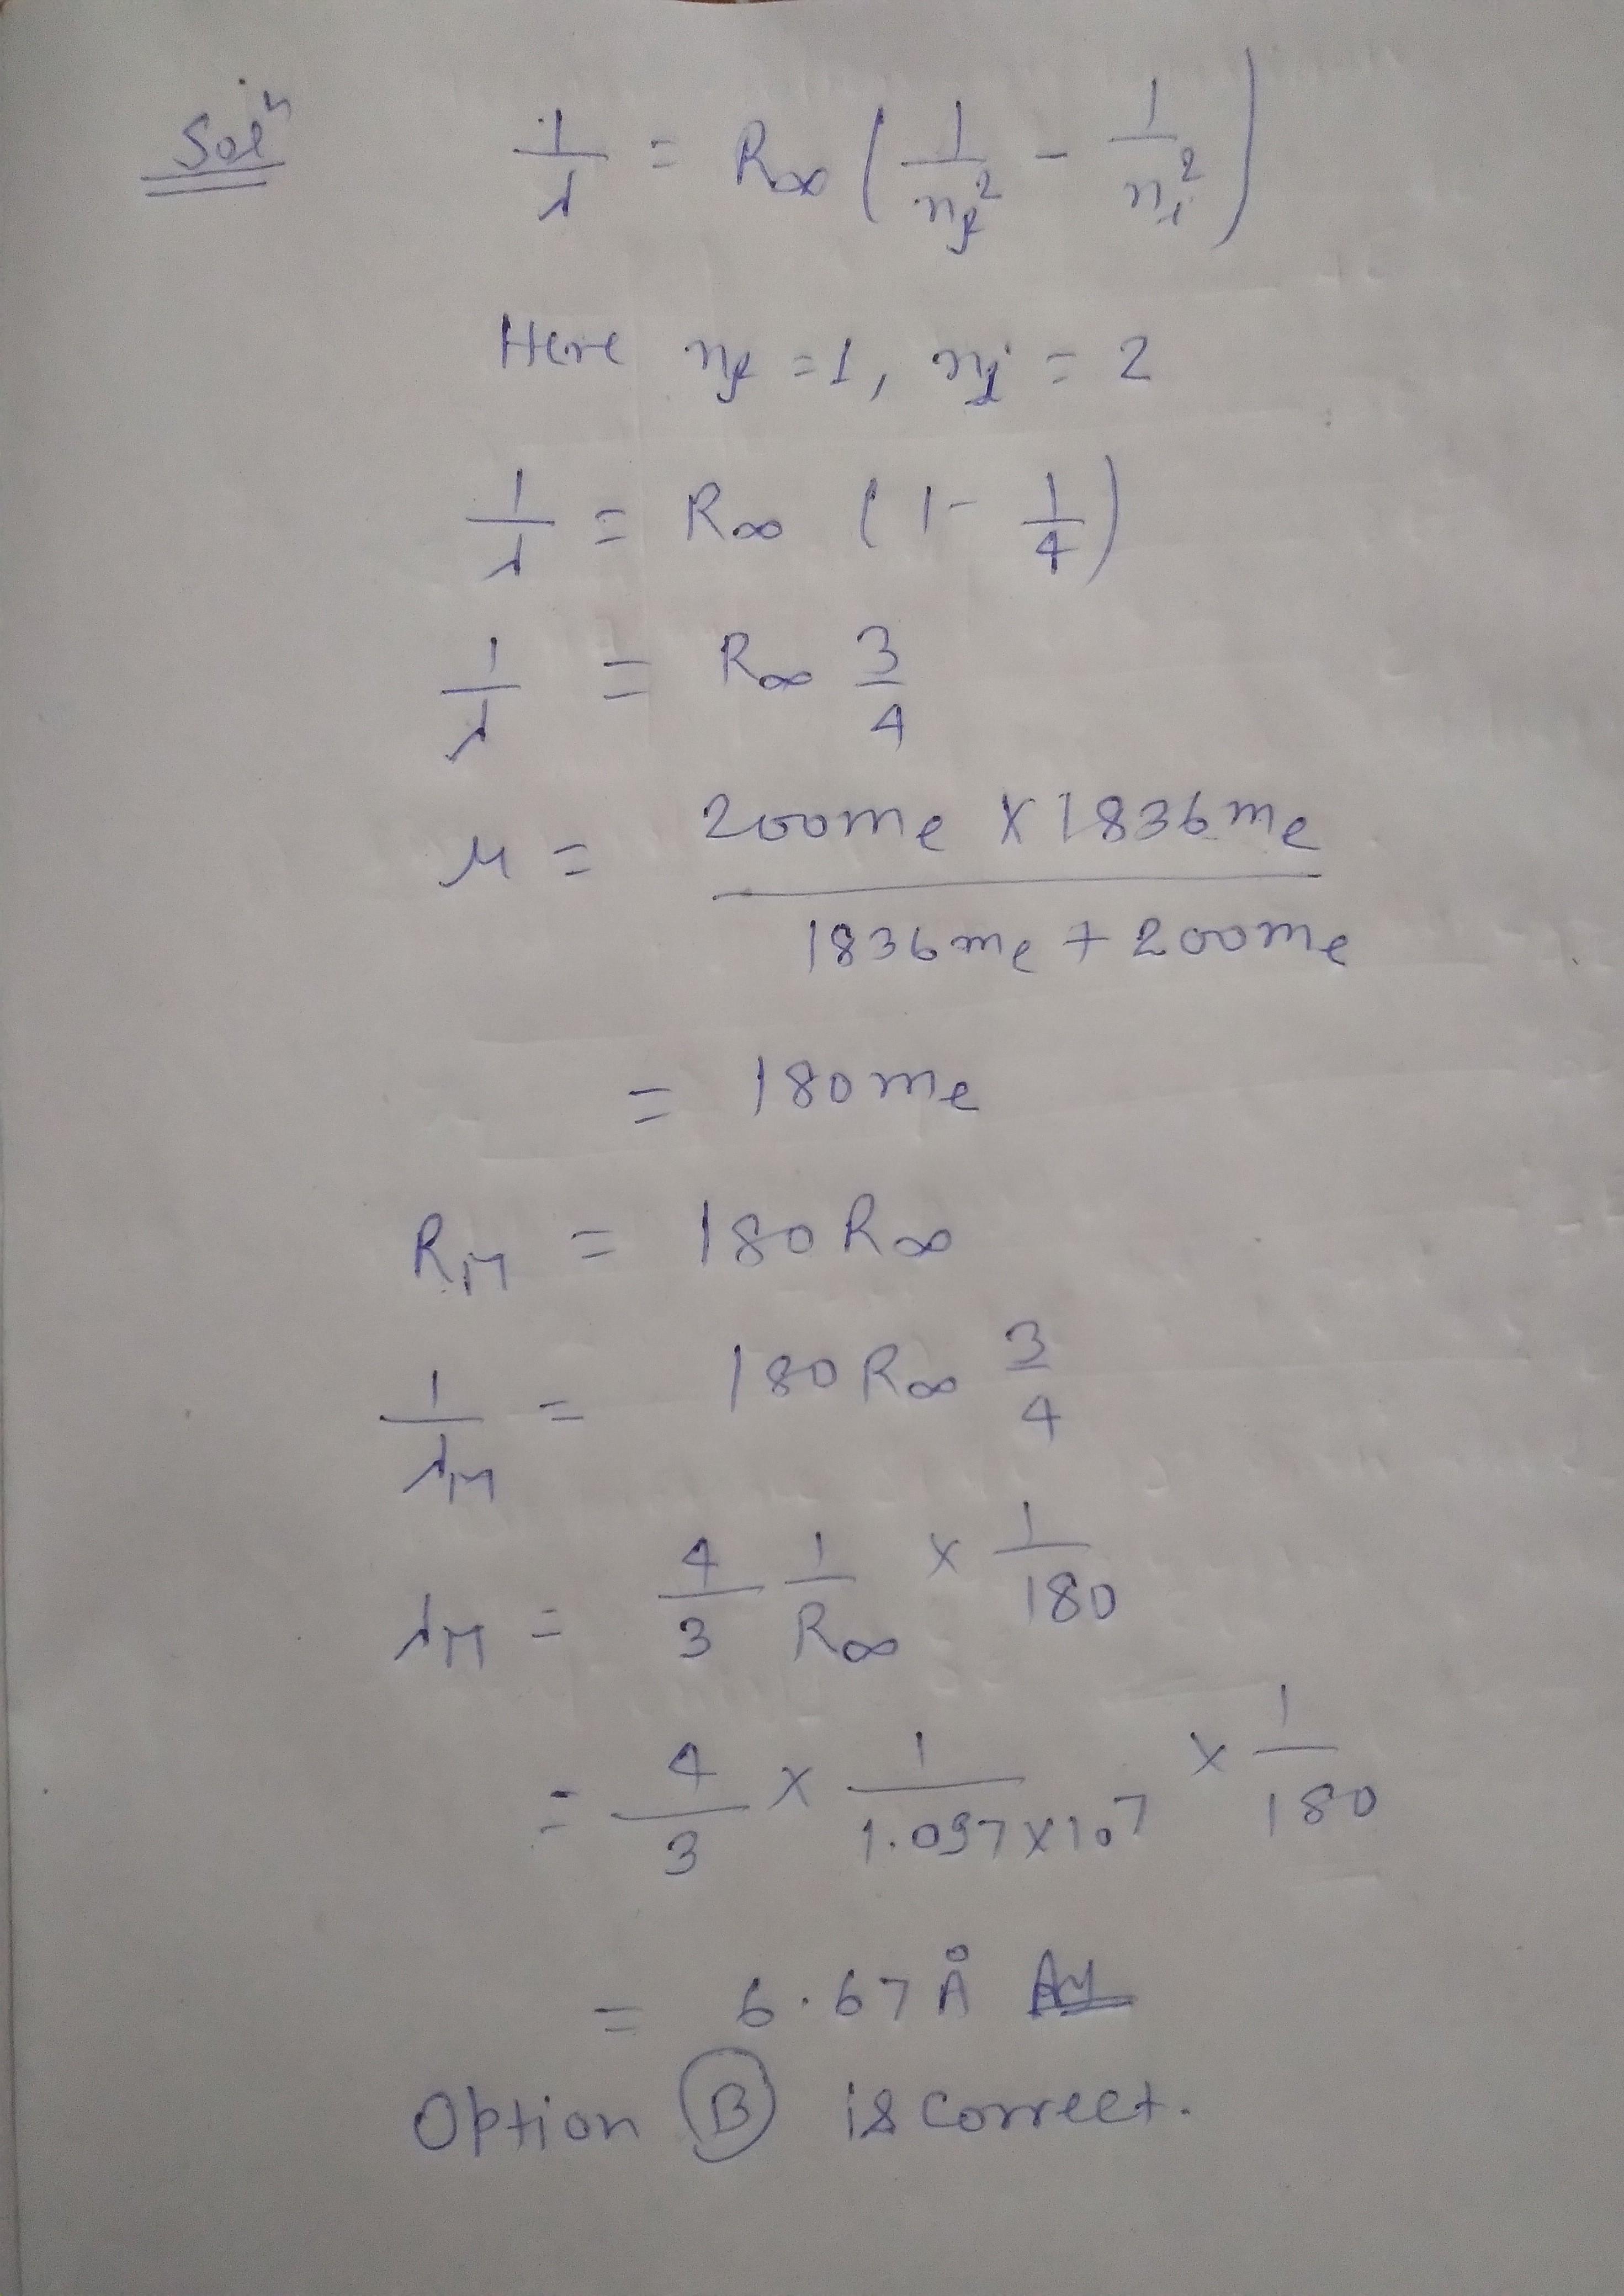 Solⁿ 1/λ = R∞ (1/n_f² - 1/n_i²)
Here n_f = 1, n_i = 2
1/λ = R∞ (1 - 1/4)
1/λ = R∞ 3/4
μ = 200me × 1836me / 1836me + 200me
= 180me
R_M = 180 R∞
1/λ_M = 180 R∞ 3/4
λ_M = 4/3 1/R∞ × 1/180
= 4/3 × 1/1.097×10⁷ × 1/180
= 6.67 Å Ans
Option (B) is correct.